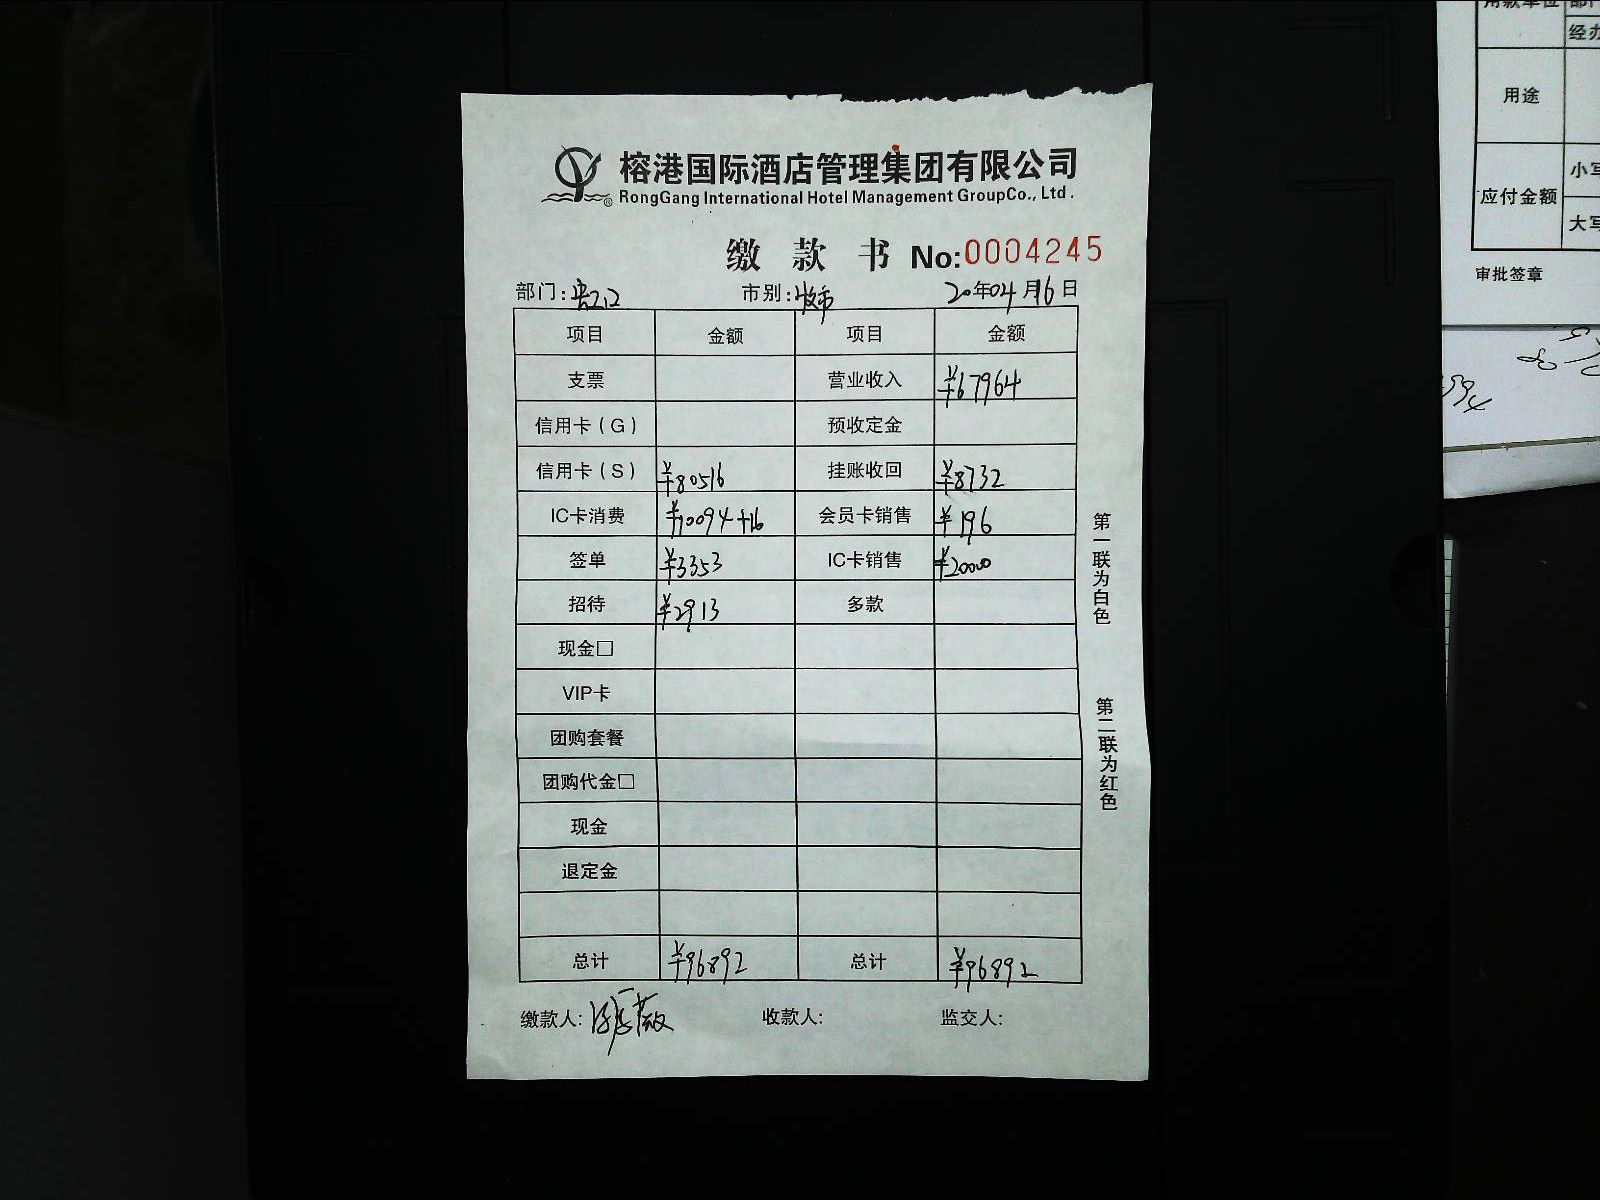 榕港国际酒店管理集团有限公司
RongGang International Hotel Management GroupCo., Ltd.
缴 款 书 No:0004245
部门: 市别: 20年04月16日
项目 金额 项目 金额
支票 营业收入 ¥67964
信用卡(G) 预收定金
信用卡(S) ¥80516 挂账收回 ¥8732
IC卡消费 ¥10094+16 会员卡销售 ¥196
签单 ¥3353 IC卡销售 ¥20000
招待 ¥2913 多款
现金□
VIP卡
团购套餐
团购代金□
现金
退定金
总计 ¥96892 总计 ¥96892
缴款人: 收款人: 监交人:
第一联为白色
第二联为红色
用款单位
经办
用途
应付金额
小写
大写
审批签章